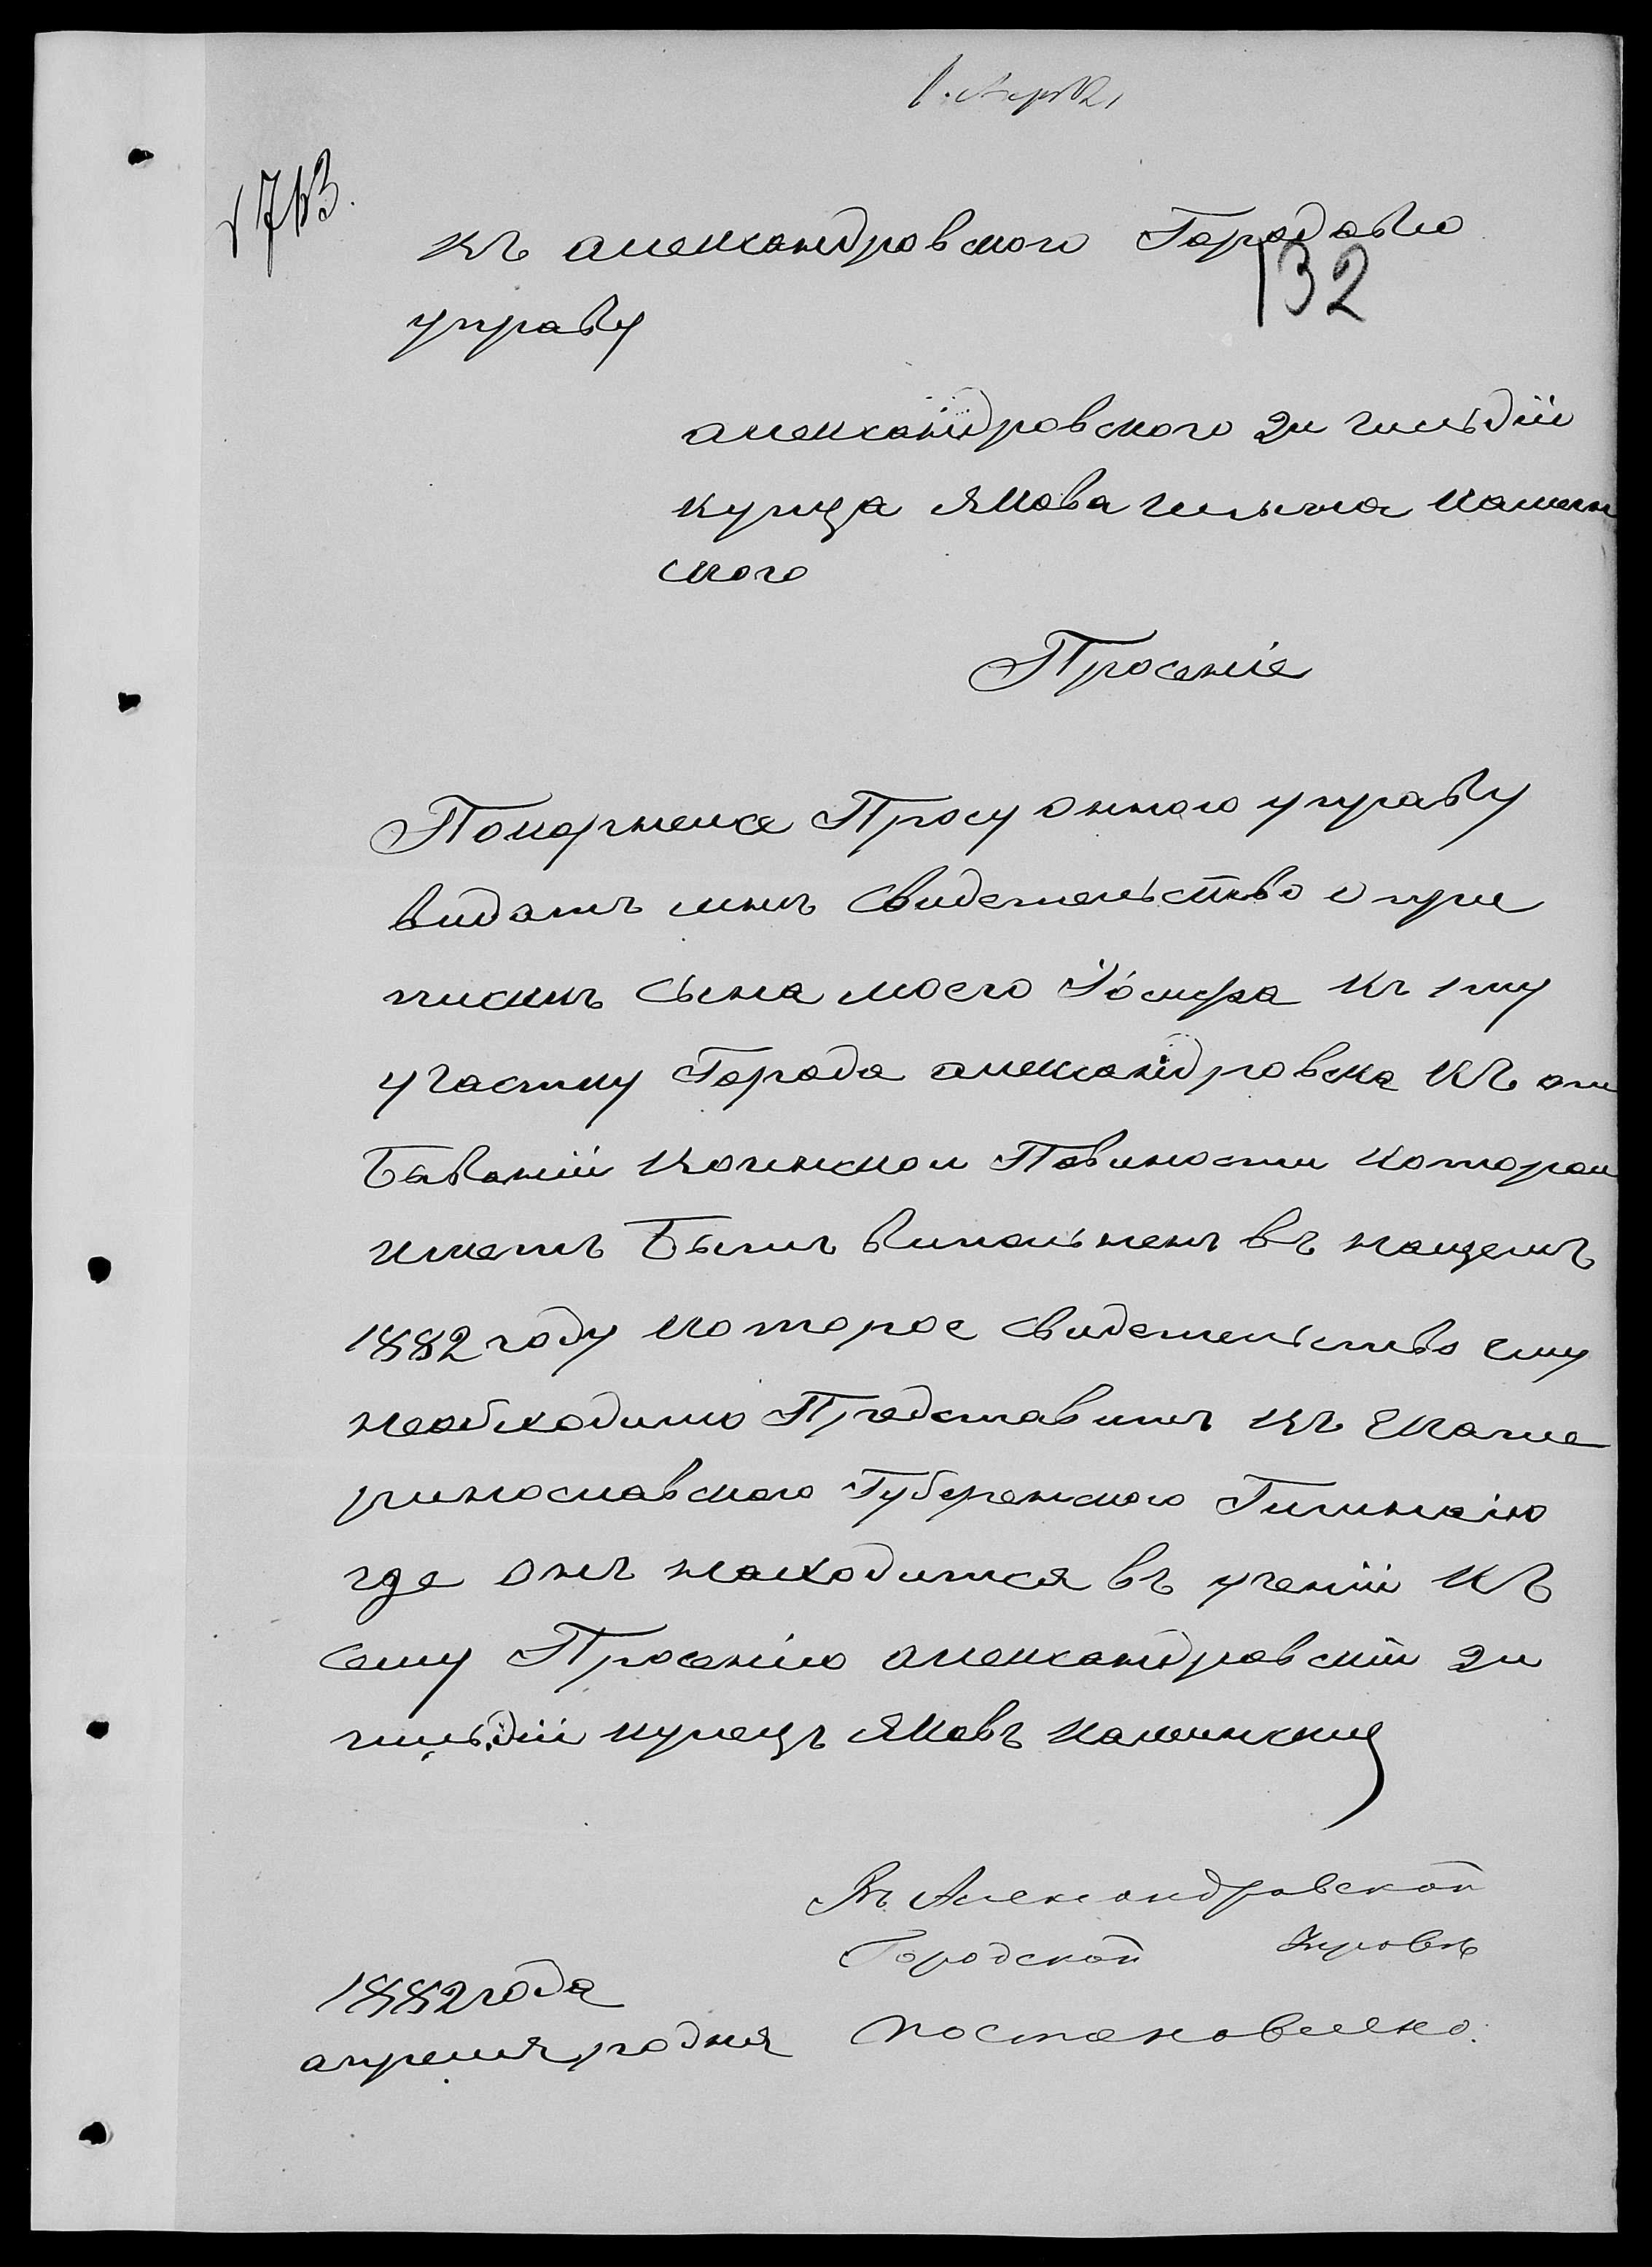 713.
132
къ александровского Городовю
управу
александровского 2й гильдіи
купца Якова Ильича Камен
ского
Просеніе
Покорнеисе Просу онного управу
видать мнъ свидетельство о при
пискъ сына моего Іосифа къ 1му
участку Города александровска къ от
быванііи Воинскои Повиности которои
иметъ быть виполненъ въ нащемъ
1882 году которое свидетельство ему
необходимо Представить къ Екате
ринославского Губеренского Гимназію
где онъ находится въ ученіи къ
сему Просенію александровскіи 2й
гильдіи купецъ Яковъ Каминский
Въ Александровской
Городской Управѣ
постановлено:
1882 года
апреля 1го дня